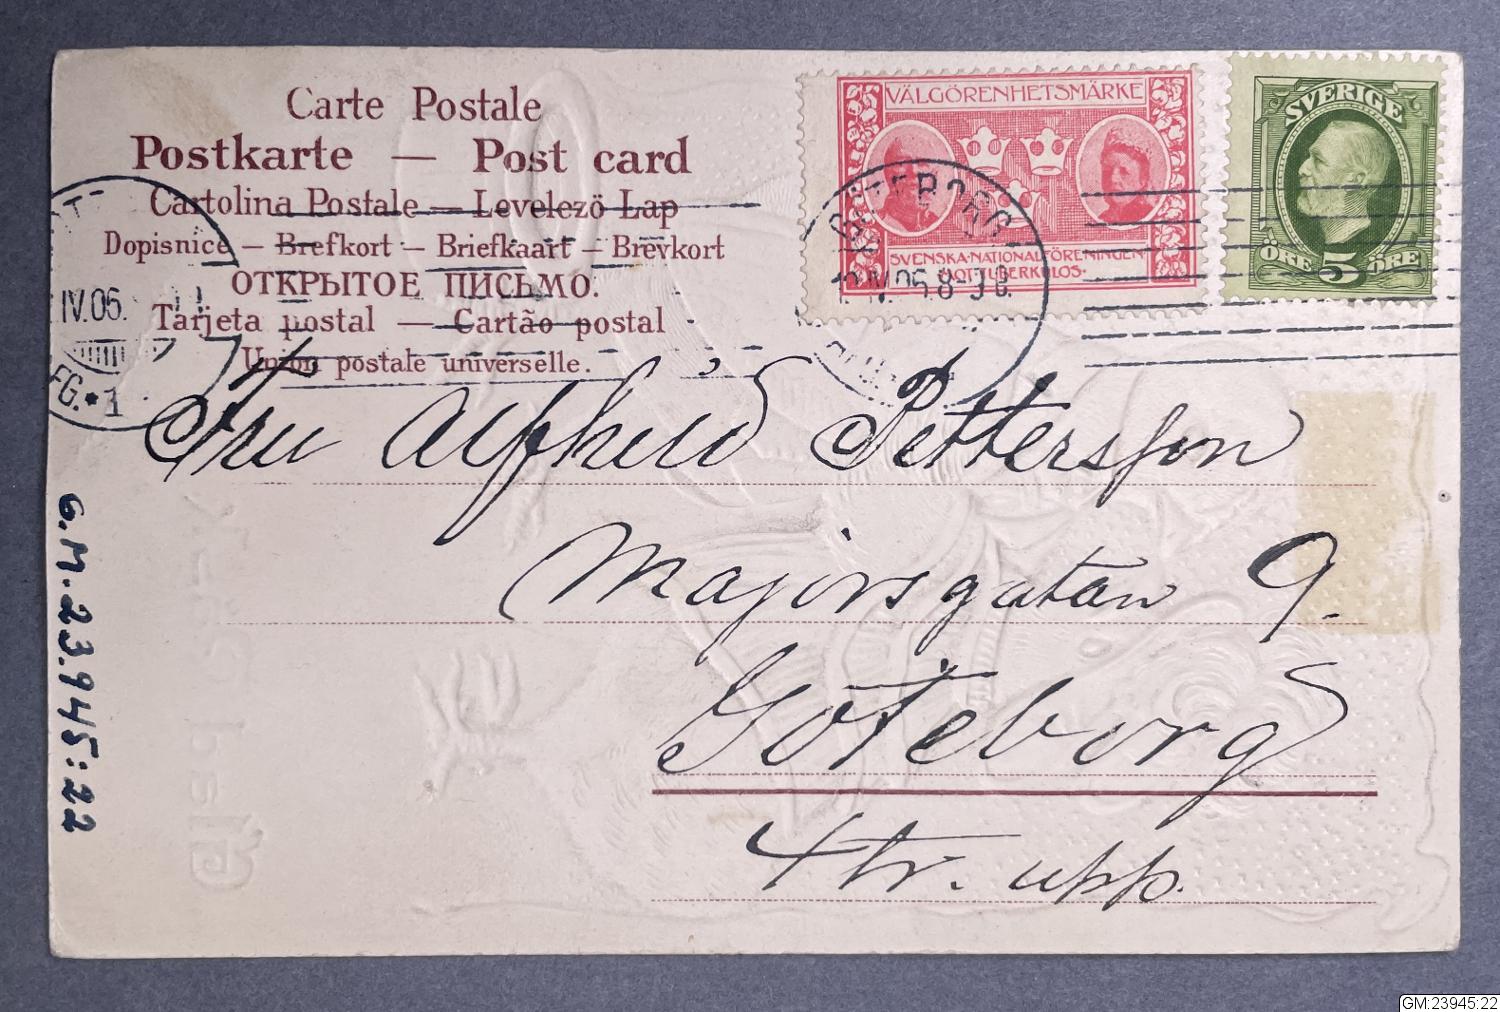 Carte Postale
Postkarte — Post card
Cartolina Postale — Levelezö Lap
Dopisnice — Brefkort — Briefkaart — Brevkort
ОТКРЫТОЕ ПИСЬМО.
Tarjeta postal — Cartão postal
Union postale universelle.
VÄLGÖRENHETSMÄRKE
SVENSKA·NATIONALFÖRENINGEN
MOT TUBERKULOS·
SVERIGE
ÖRE 5 ÖRE
GÖTEBORG
IV.05. 8-9
IV.05.
*1
Fru Alfhild Pettersson
Majorsgatan 9.
Göteborg
4 tr. upp.
G.M. 23.945:22
GM:23945:22